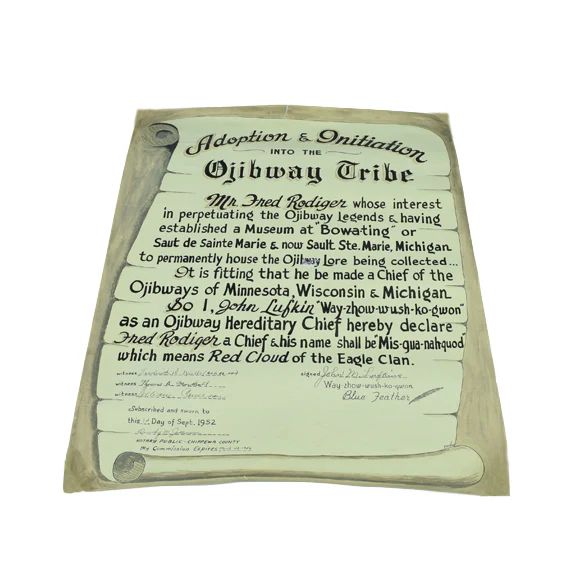 Adoption & Initiation
INTO THE
Ojibway Tribe
Mr. Fred Rodiger whose interest
in perpetuating the Ojibway Legends & having
established a Museum at "Bowating" or
Saut de Sainte Marie & now Sault Ste. Marie, Michigan
to permanently house the Ojibway Lore being collected...
It is fitting that he be made a Chief of the
Ojibways of Minnesota, Wisconsin & Michigan
So I, John Lufkin "Way-zhow-wush-ko-gwon"
as an Ojibway Hereditary Chief hereby declare
Fred Rodiger a Chief & his name shall be "Mis-gua-nah-quod"
which means Red Cloud of the Eagle Clan.
witness
witness
witness
signed John
Way-zhow-wush-ko-gwon
Blue Feather
Subscribed and sworn to
this Day of Sept. 1952
NOTARY PUBLIC - CHIPPEWA COUNTY
My Commission Expires